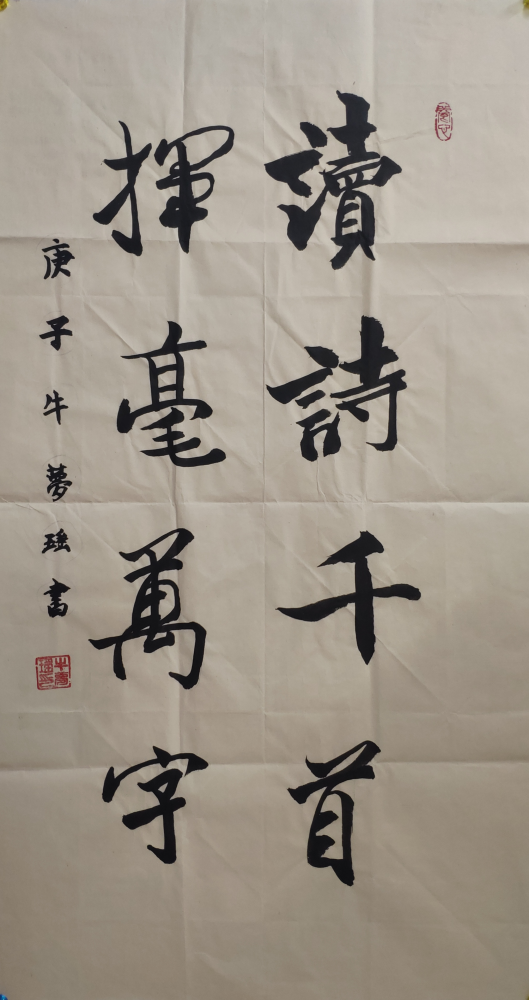 讀詩千首
揮毫萬字
庚子牛夢瑤書